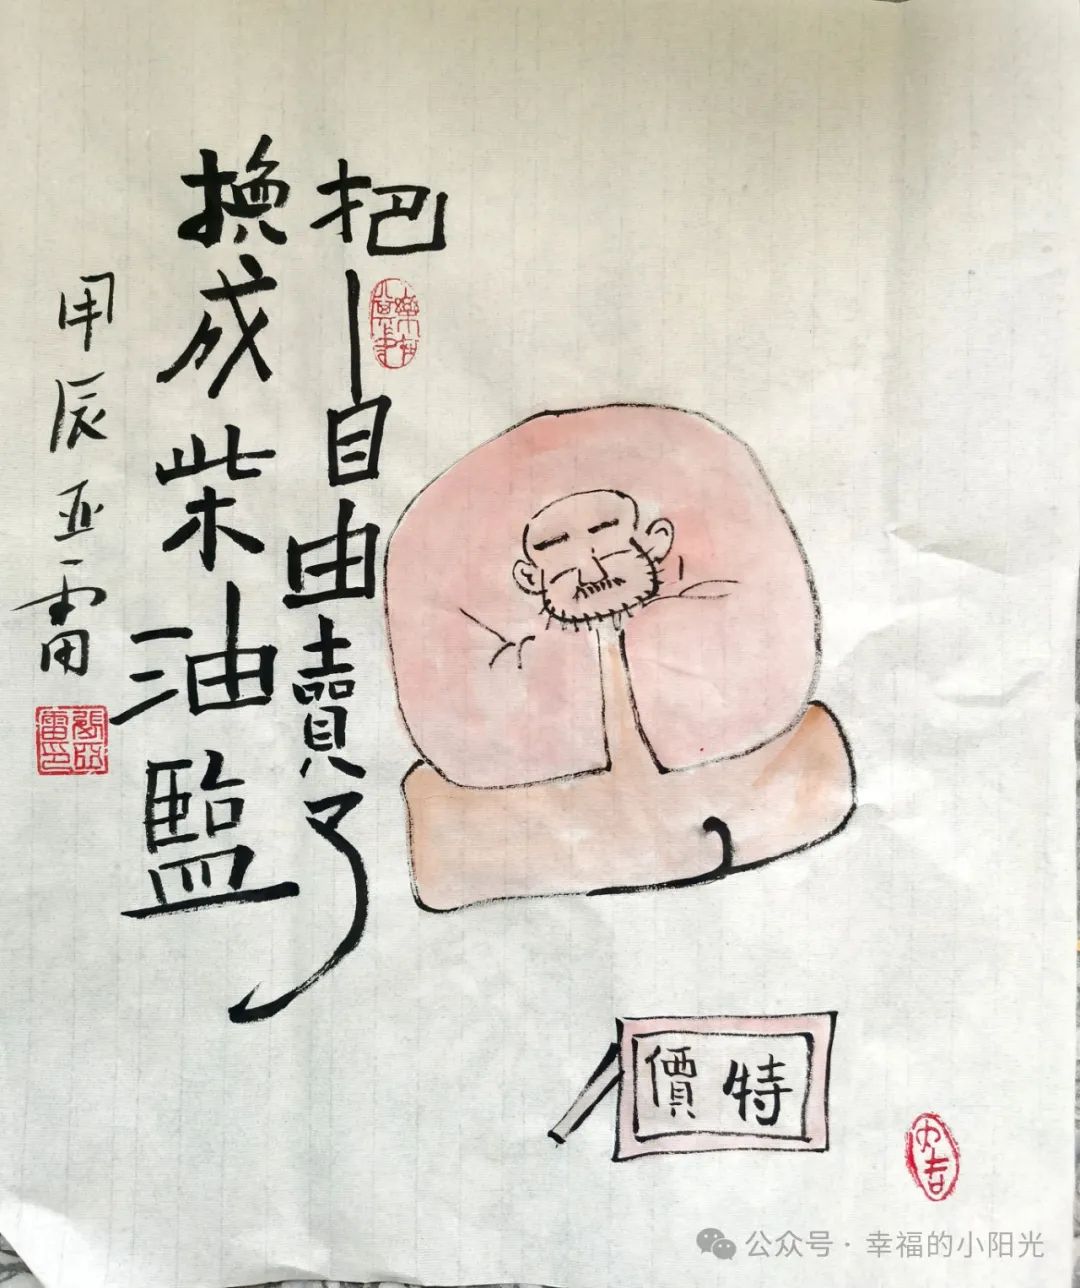 把自由賣了
換成柴油鹽
甲辰亚雷
張亞雷印
特價
公众号·幸福的小阳光